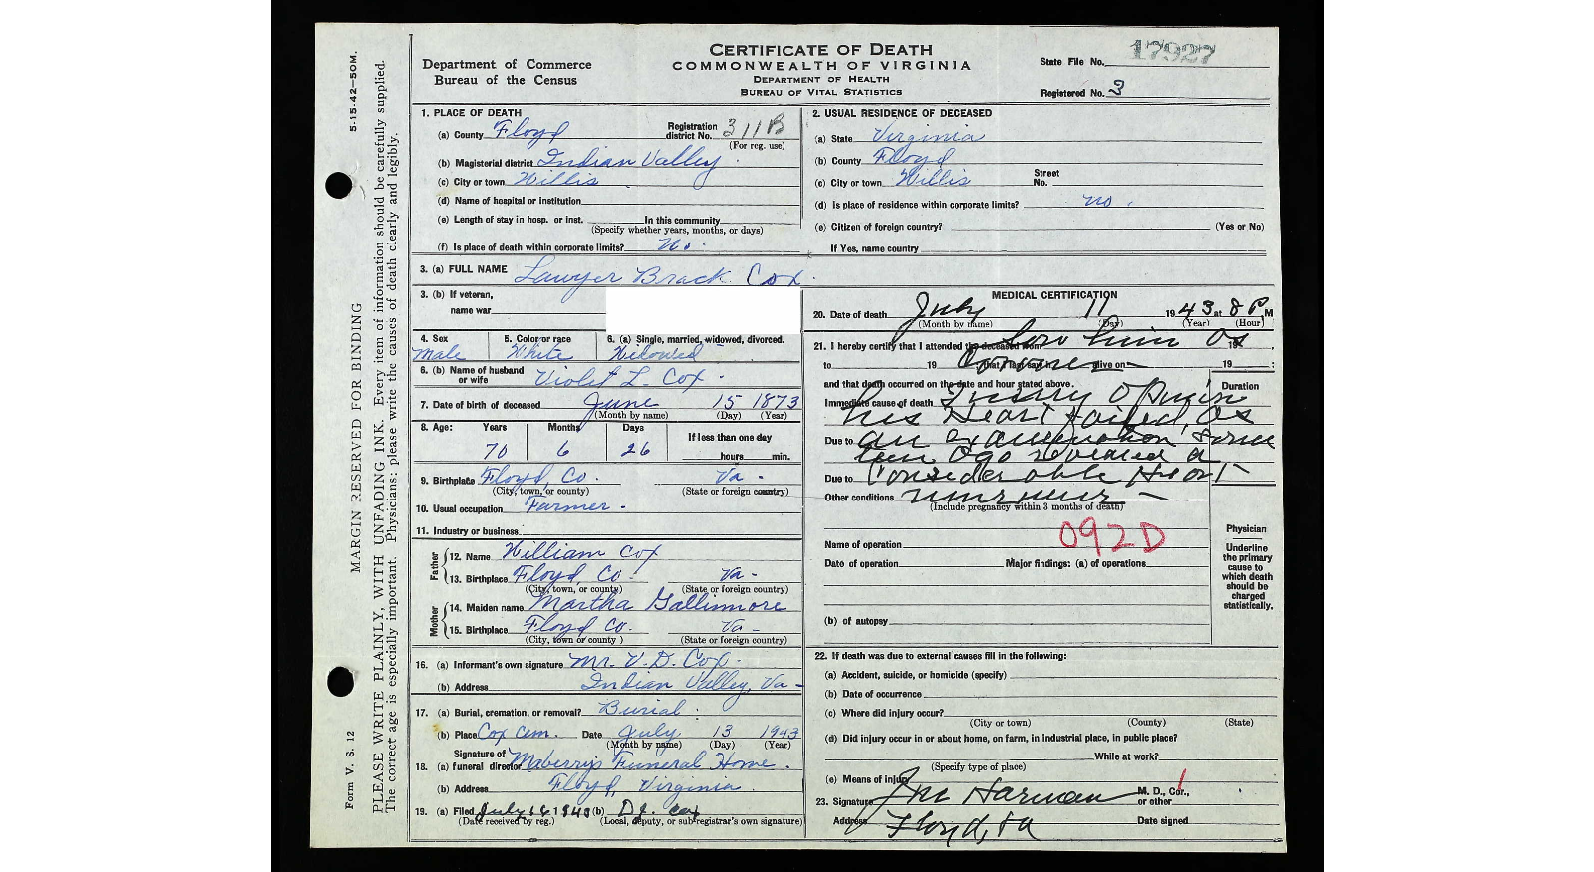 CERTIFICATE OF DEATH
COMMONWEALTH OF VIRGINIA
DEPARTMENT OF HEALTH
BUREAU OF VITAL STATISTICS
Department of Commerce
Bureau of the Census
State File No. 17927
Registered No. 3
5-15-42—50M.
MARGIN RESERVED FOR BINDING
PLEASE WRITE PLAINLY, WITH UNFADING INK. Every item of information should be carefully supplied.
The correct age is especially important. Physicians: please write the causes of death clearly and legibly.
Form V. S. 12
1. PLACE OF DEATH
(a) County Floyd Registration district No. 311B
(For reg. use)
(b) Magisterial district Indian Valley
(c) City or town Willis
(d) Name of hospital or institution
(e) Length of stay in hosp. or inst. In this community
(Specify whether years, months, or days)
(f) Is place of death within corporate limits? No.
2. USUAL RESIDENCE OF DECEASED
(a) State Virginia
(b) County Floyd
(c) City or town Willis Street No.
(d) Is place of residence within corporate limits? no.
(e) Citizen of foreign country? (Yes or No)
If Yes, name country
3. (a) FULL NAME Lawyer Brack Cox.
3. (b) If veteran,
name war
4. Sex 5. Color or race 6. (a) Single, married, widowed, divorced.
male White Widowed
6. (b) Name of husband or wife Violet L. Cox.
7. Date of birth of deceased June 15 1873
(Month by name) (Day) (Year)
8. Age: Years Months Days If less than one day
70 6 26 hours min.
9. Birthplace Floyd, Co. Va -
(City, town, or county) (State or foreign country)
10. Usual occupation Farmer.
11. Industry or business
Father
12. Name William Cox
13. Birthplace Floyd, Co - Va -
(City, town, or county) (State or foreign country)
Mother
14. Maiden name Martha Gallimore
15. Birthplace Floyd Co. Va -
(City, town or county) (State or foreign country)
16. (a) Informant's own signature Mr. V. D. Cox.
(b) Address Indian Valley, Va -
17. (a) Burial, cremation, or removal? Burial.
(b) Place Cox Cem. Date July 13 1943
(Month by name) (Day) (Year)
18. (a) Signature of funeral director Maberrys Funeral Home.
(b) Address Floyd, Virginia.
19. (a) Filed July 1943 (b) D.J. Cox
(Date received by reg.) (Local, deputy, or sub-registrar's own signature)
MEDICAL CERTIFICATION
20. Date of death July 11 1943 at 8 P M
(Month by name) (Day) (Year) (Hour)
21. I hereby certify that I attended the deceased from saw him as 19
to 19 Coroner that I last saw h alive on 19 ;
and that death occurred on the date and hour stated above. Duration
Immediate cause of death In my Opinion
his Heart failed, As
Due to an examination some
time ago revealed a
Due to Considerable Heart
Other conditions murmur -
(Include pregnancy within 3 months of death)
092D
Name of operation
Date of operation Major findings: (a) of operations
(b) of autopsy
Physician
Underline the primary cause to which death should be charged statistically.
22. If death was due to external causes fill in the following:
(a) Accident, suicide, or homicide (specify)
(b) Date of occurrence
(c) Where did injury occur?
(City or town) (County) (State)
(d) Did injury occur in or about home, on farm, in industrial place, in public place?
While at work?
(Specify type of place)
(e) Means of injury
23. Signature Harman M. D., Cor., or other
Address Floyd, Va Date signed